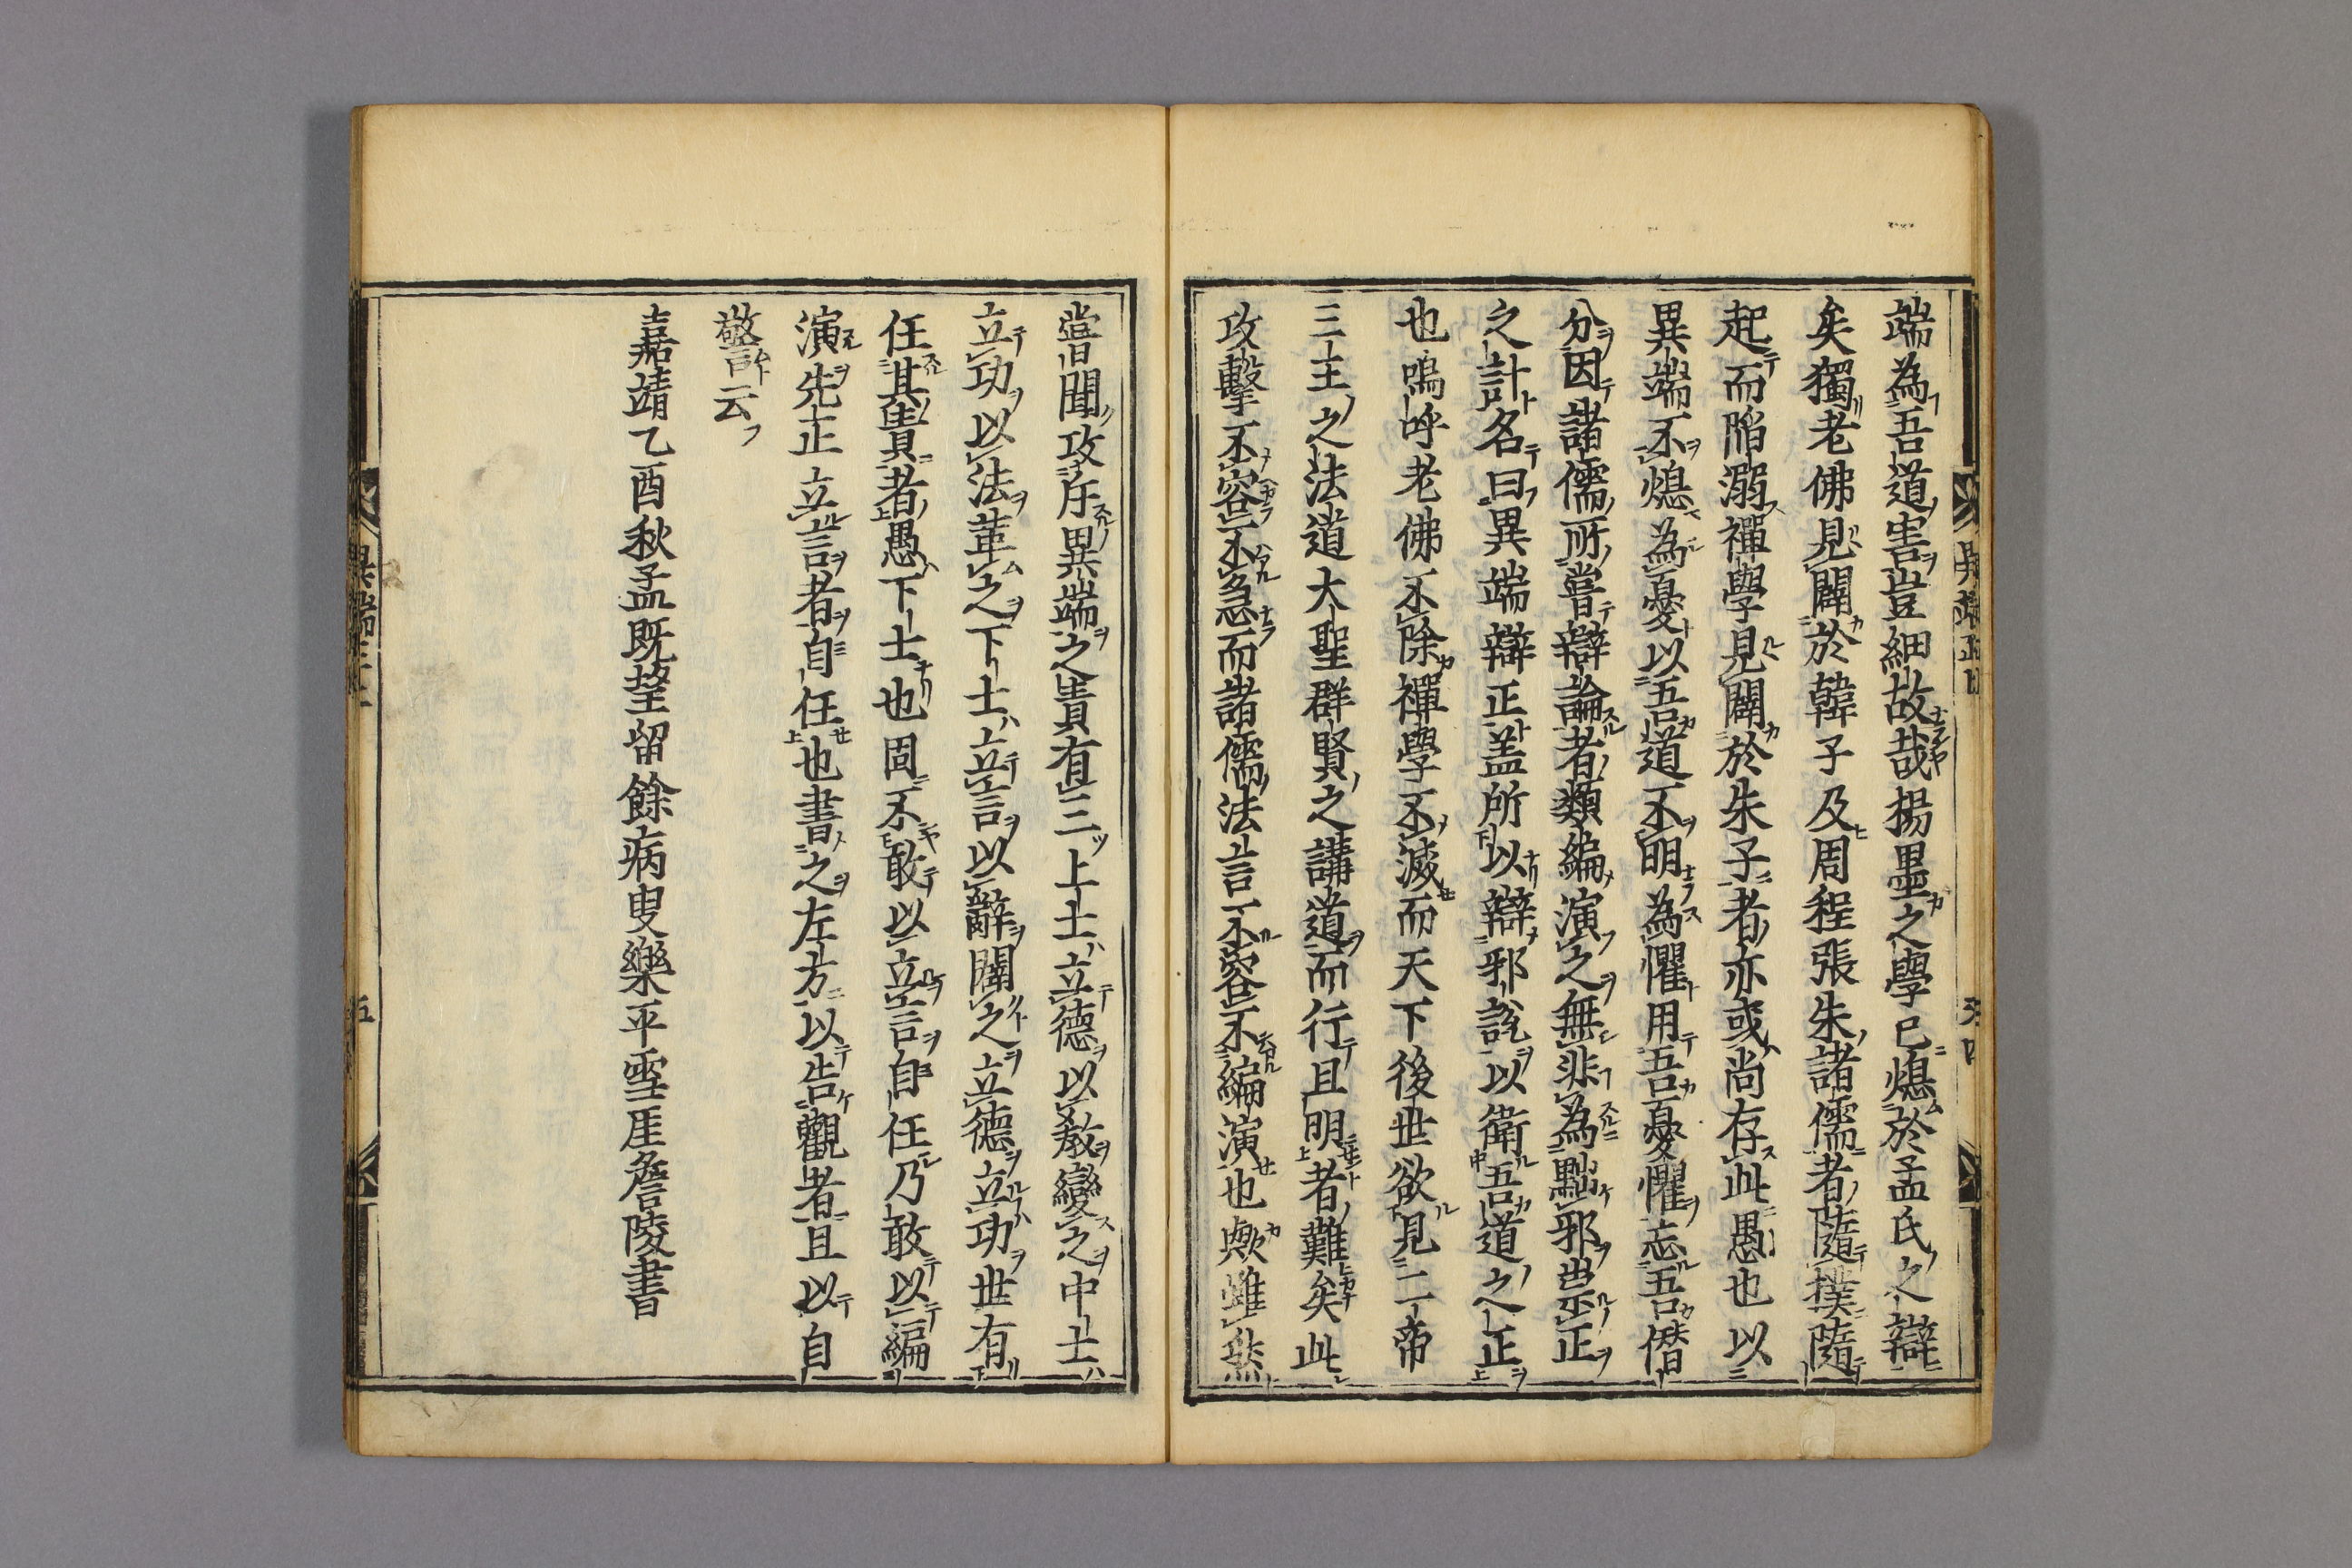 端為吾道害豈細故哉揚墨之學已熄於孟氏之辯
矣獨老佛見闢於韓子及周程張朱諸儒者隨撲隨
起而陷溺禪學見闢於朱子者亦或尚存此愚也以
異端不熄為憂以吾道不明為懼用吾憂懼忘吾僭
分因諸儒所嘗辯論者類編演之無非為黜邪崇正
之計名曰異端辯正盖所以辯邪說以衛吾道之正
也嗚呼老佛不除禪學不滅而天下後世欲見二帝
三王之法道大聖群賢之講道而行且明者難矣此
攻擊不容不急而諸儒法言不容不編演也歟雖然
嘗聞攻斥異端之責有三上士立德以教變之中士
立功以法革之下士立言以辭闢之立德立功世有
任其責者愚下士也固不敢以立言自任乃敢以編
演先正立言者自任也書之左方以告觀者且以自
警云
嘉靖乙酉秋孟既望留餘病叟樂平雪厓詹陵書
異端
五